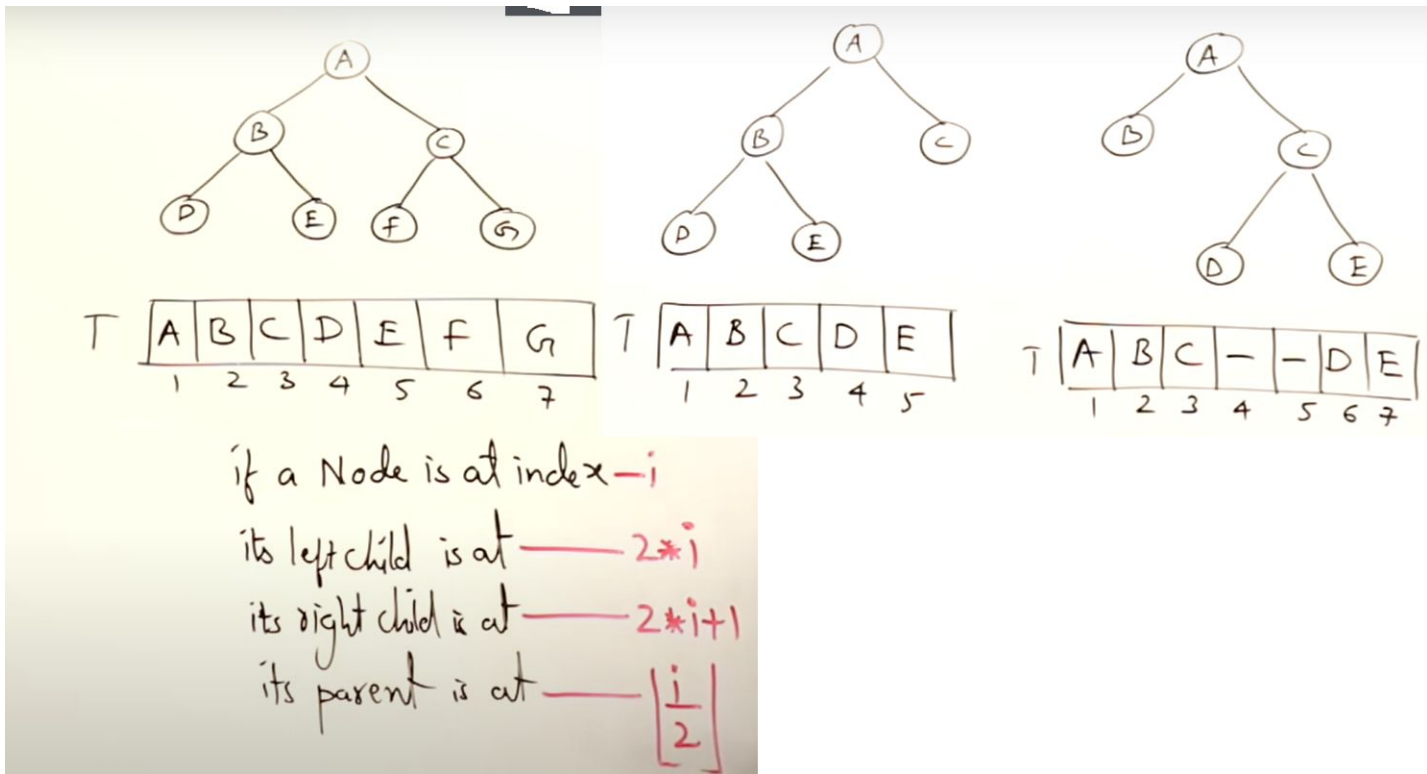 A
B
C
D
E
F
G
T A B C D E F G
1 2 3 4 5 6 7
A
B
C
D
E
T A B C D E
1 2 3 4 5
A
B
C
D
E
T A B C - - D E
1 2 3 4 5 6 7
if a Node is at index - i
its left child is at — 2*i
its right child is at — 2*i+1
its parent is at — ⌊i/2⌋